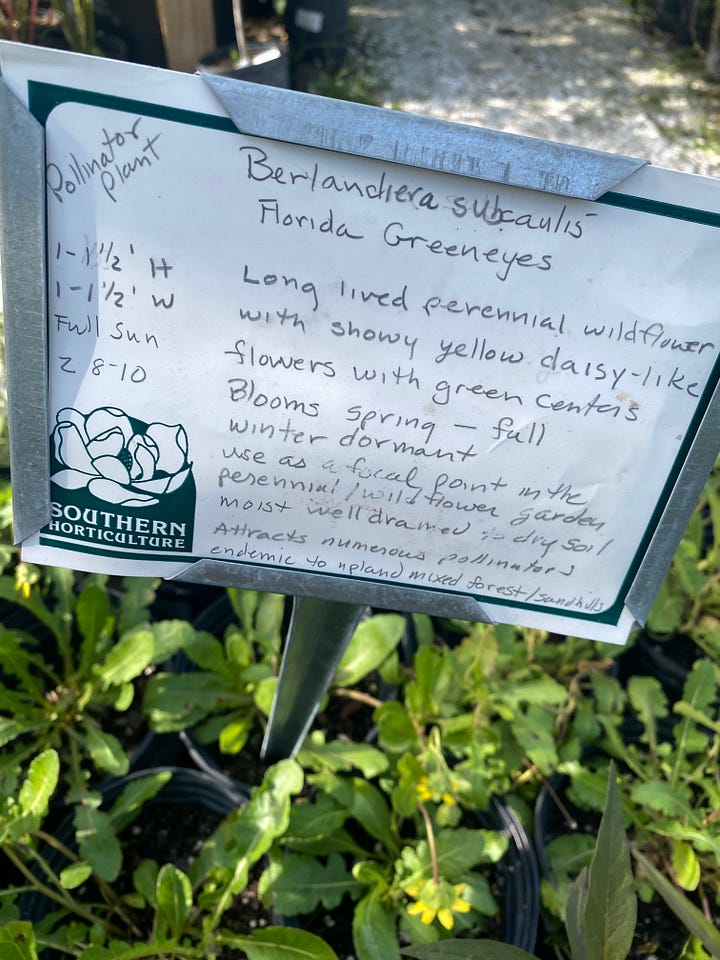 Pollinator
Plant
1-1½' H
1-1½' W
Full Sun
Z 8-10
SOUTHERN
HORTICULTURE
Berlandiera subcaulis
Florida Greeneyes
Long lived perennial wildflower
with showy yellow daisy-like
flowers with green centers
Blooms spring - fall
winter dormant
use as a focal point in the
perennial/wildflower garden
moist well drained - dry soil
Attracts numerous pollinators
endemic to upland mixed forest/sandhills